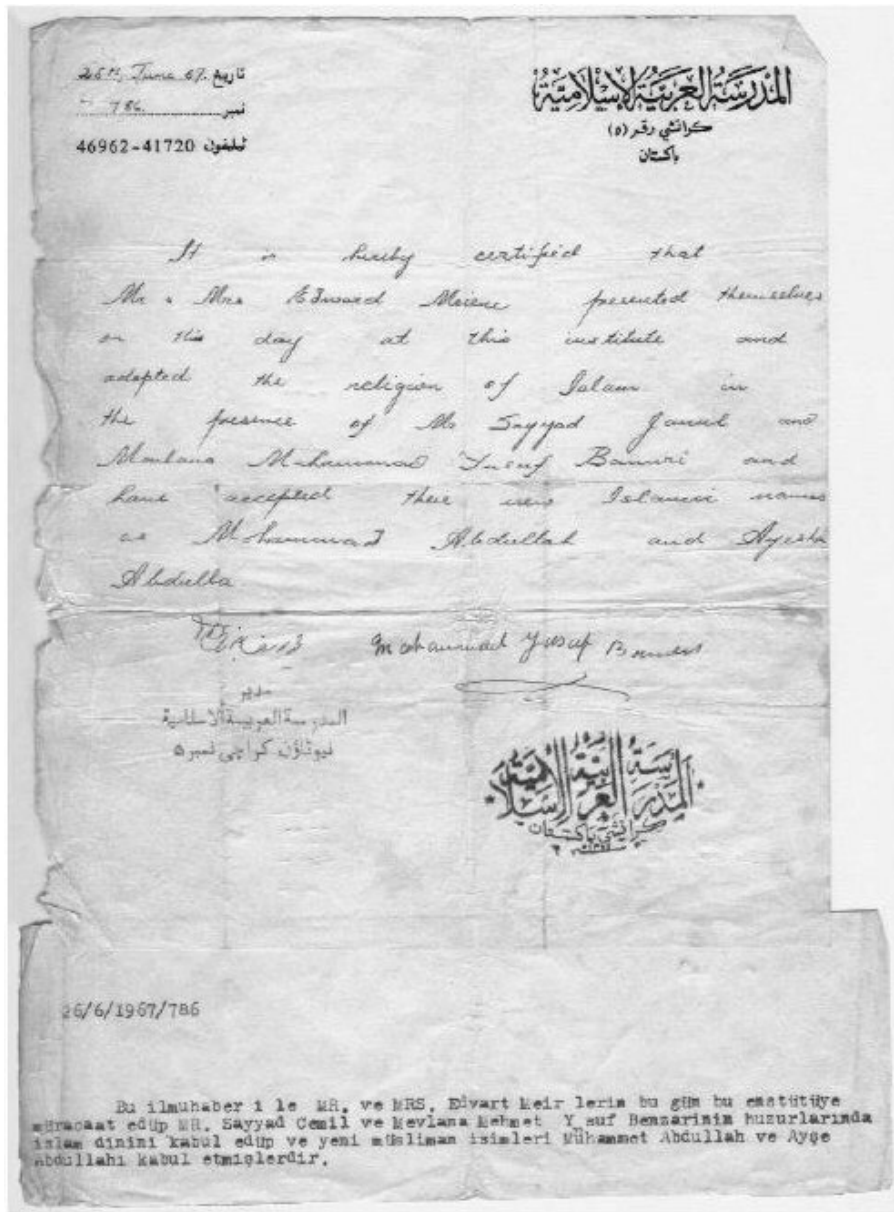 تاریخ 26th June 67.
نمبر 786
ٹیلفون 46962-41720
المدرسة العربية الإسلامية
كراتشي رقم (٥)
باكستان
It is hereby certified that
Mr & Mrs Edward Meiene presented themselves
on this day at this institute and
adopted the religion of Islam in
the presence of Mr Sayyad Jamil and
Moulana Muhammad Yusuf Banuri and
have accepted their new Islamic names
as Mohammad Abdullah and Ayesha
Abdulla
Mohammad Yusuf
مدير
المدرسة العربية الاسلامية
نیوٹاؤن کراچی نمبر ۵
المدرسة العربية الإسلامية
كراتشي باكستان
26/6/1967/786
Bu ilmuhaber i le MR. ve MRS. Edvart Meir lerin bu gün bu enstütüye
müracaat edüp MR. Sayyad Cemil ve Mevlana Mehmet Y suf Benzarinin huzurlarında
islam dinini kabul edüp ve yeni müsliman isimleri Mühammet Abdullah ve Ayşe
Abdullahı kabul etmişlerdir.